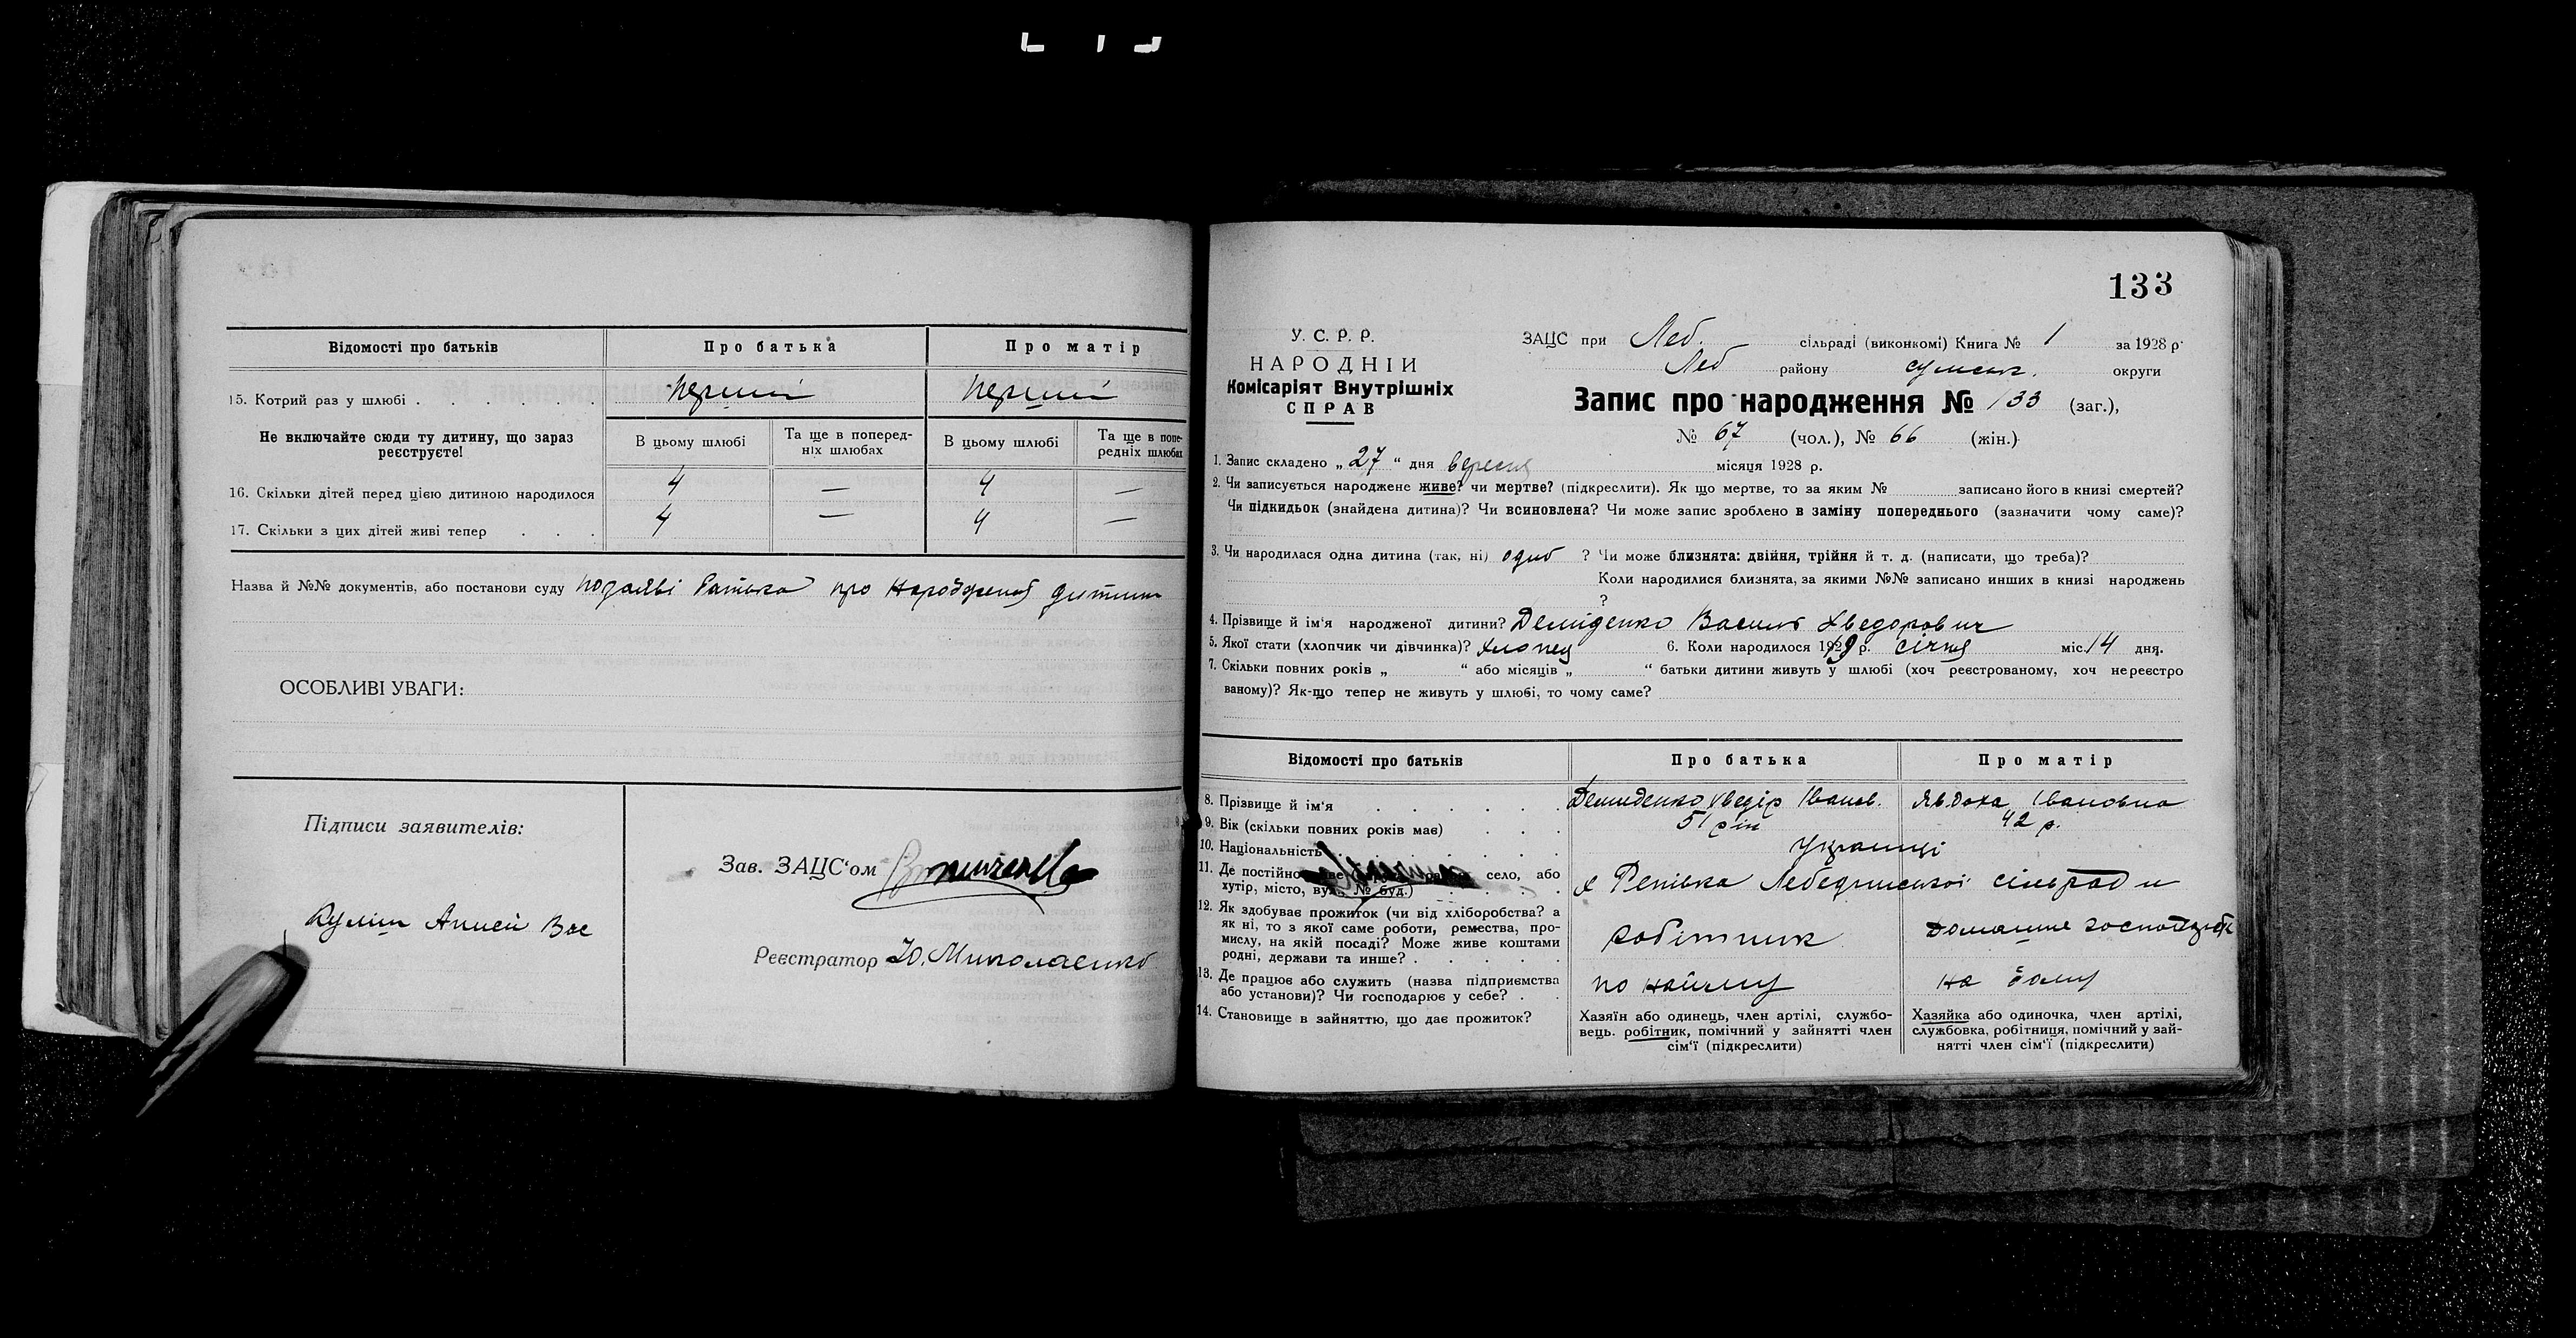 Відомості про батьків Про батька Про матір
15. Котрий раз у шлюбі . . . . . . перший перший
Не включайте сюди ту дитину, що зараз реєструєте!
В цьому шлюбі Та ще в поперед-
ніх шлюбах В цьому шлюбі Та ще в попе-
редніх шлюбах
16. Скільки дітей перед цією дитиною народилося 4 — 4 —
17. Скільки з цих дітей живі тепер . . . 4 — 4 —
Назва й №№ документів, або постанови суду по заяві батька про народження дитини
ОСОБЛИВІ УВАГИ:
Підписи заявителів:
Куліш
Зав. ЗАЦС‘ом
Реєстратор Ю. Миколаєнко
133
У. С. Р. Р.
НАРОДНІЙ
Комісаріят Внутрішніх
СПРАВ
ЗАЦС при Леб. сільраді (виконкомі) Книга № 1 за 1928 р.
Леб району Сумськ. округи
Запис про народження № 133 (заг.),
№ 67 (чол.), № 66 (жін.)
1. Запис складено „ 27 “ дня вересня місяця 1928 р.
2. Чи записується народжене живе? чи мертве? (підкреслити). Як що мертве, то за яким № записано його в книзі смертей?
Чи підкидьок (знайдена дитина)? Чи всиновлена? Чи може запис зроблено в заміну попереднього (зазначити чому саме)?
3. Чи народилася одна дитина (так, ні) одно ? Чи може близнята: двійня, трійня й т. д. (написати, що треба)?
Коли народилися близнята, за якими №№ записано инших в книзі народжень
?
4. Прізвище й ім‘я народженої дитини? Деміденко Василь Хведорович
5. Якої стати (хлопчик чи дівчинка)? хлопец 6. Коли народилося 19 р. січня міс. 14 дня.
7. Скільки повних років „ “ або місяців „ “ батьки дитини живуть у шлюбі (хоч реєстрованому, хоч нереєстро
ваному)? Як-що тепер не живуть у шлюбі, то чому саме?
Відомості про батьків Про батька Про матір
8. Прізвище й ім‘я . . . . . . Демиденко Хведір Іванов. Явдоха Івановна
9. Вік (скільки повних років має) . . . 51 рік 42 р.
10. Національність . . . . . . Українці
11. Де постійно село, або
хутір, місто, вул., № буд.) . . . . х Репівка Лебединської сільради
12. Як здобуває прожиток (чи від хліборобства? а
як ні, то з якої саме роботи, ремества, про-
мислу, на якій посаді? Може живе коштами
родні, держави та инше? . . . . . робітник Домашнє
13. Де працює або служить (назва підприємства
або установи)? Чи господарює у себе? . . по найму на дому
14. Становище в зайняттю, що дає прожиток?
Хазяїн або одинець, член артілі, службо-
вець. робітник, помічний у зайнятті член
сім‘ї (підкреслити)
Хазяйка або одиночка, член артілі,
службовка, робітниця, помічний у зай-
нятті член сім‘ї (підкреслити)